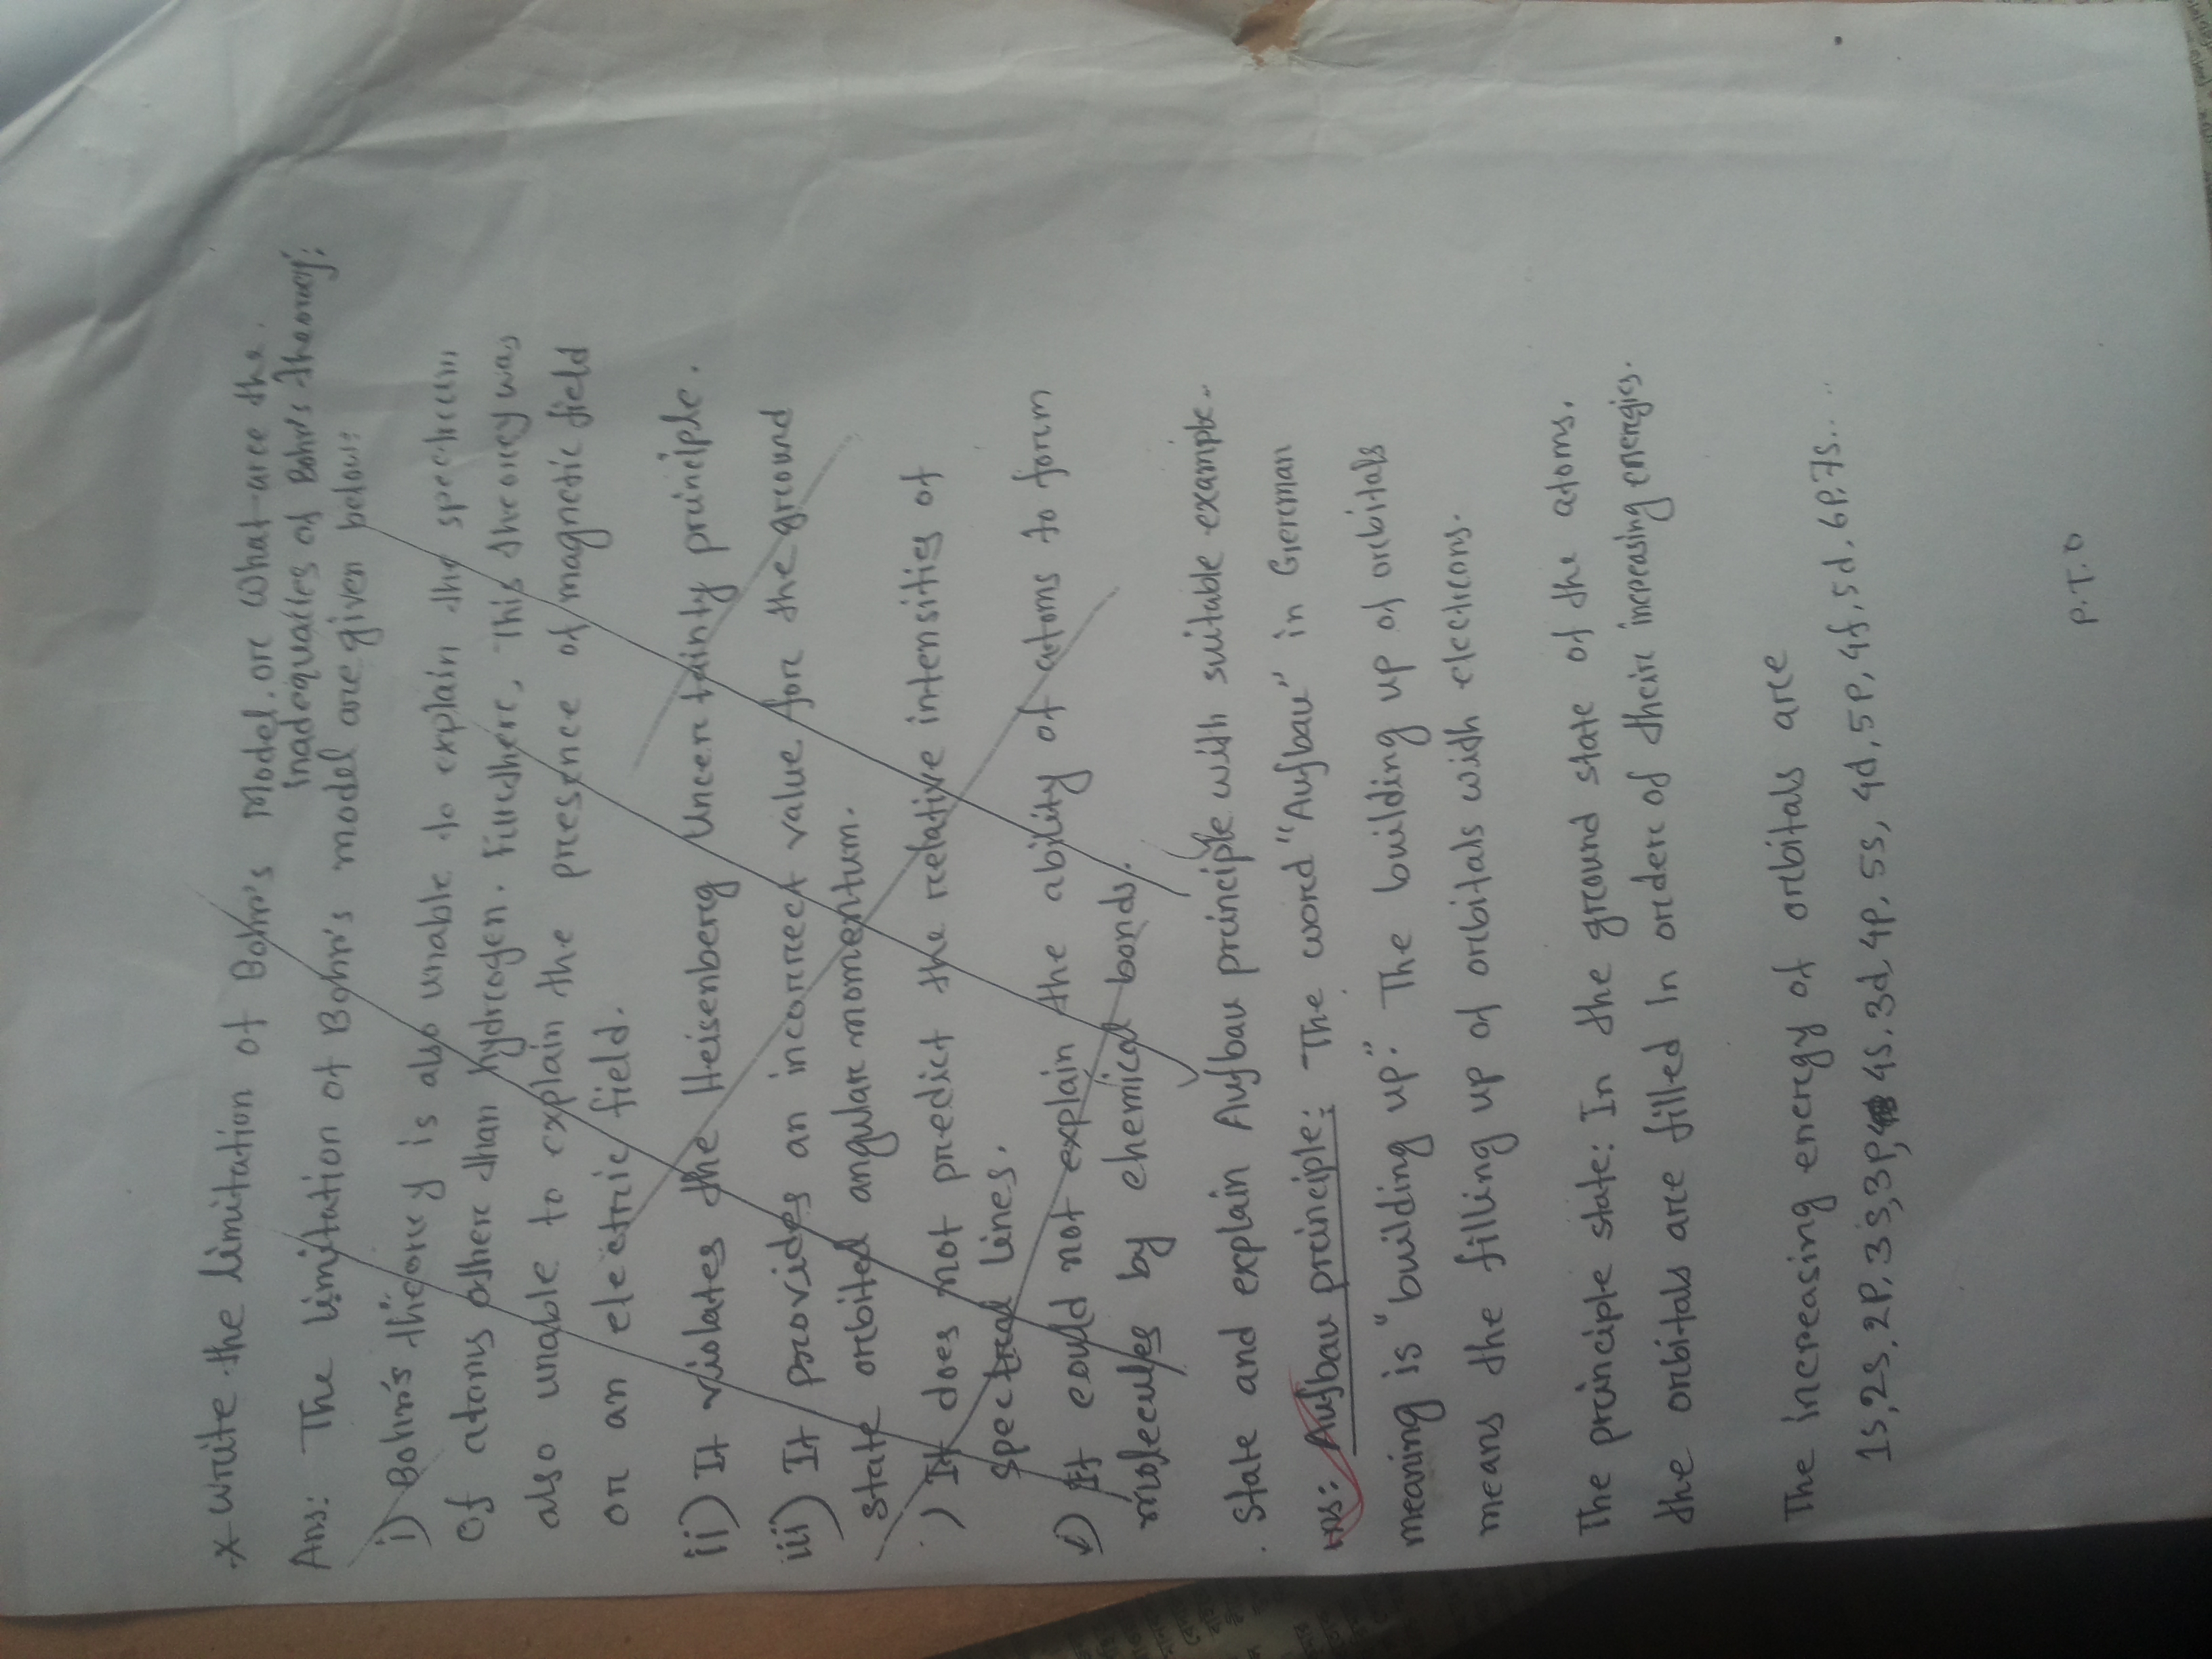 * Write the limitation of Bohr's Model. or What are the
inadequaties of Bohr's theory;
Ans: The limitation of Bohr's model are given below:
i) Bohr's theory is also unable to explain the spectrum
of atoms other than hydrogen. Furthere, This theory was
also unable to explain the presence of magnetic field
or an electric field.
ii) It violates the Heisenberg Uncertainty principle.
iii) It provides an incorrect value for the ground
state orbited angular momentum.
) It does not predict the relative intensities of
spectral lines.
) It could not explain the ability of atoms to form
molecules by chemical bonds.
. State and explain Aufbau principle with suitable example.
Ans: Aufbau principle: The word "Aufbau" in German
meaning is "building up." The building up of orbitals
means the filling up of orbitals with electrons.
The principle state: In the ground state of the atoms,
the orbitals are filled in order of their increasing energies.
The increasing energy of orbitals are
1s, 2s, 2p, 3s, 3p, 4s, 3d, 4p, 5s, 4d, 5p, 4f, 5d, 6p, 7s.. ..
P.T.O